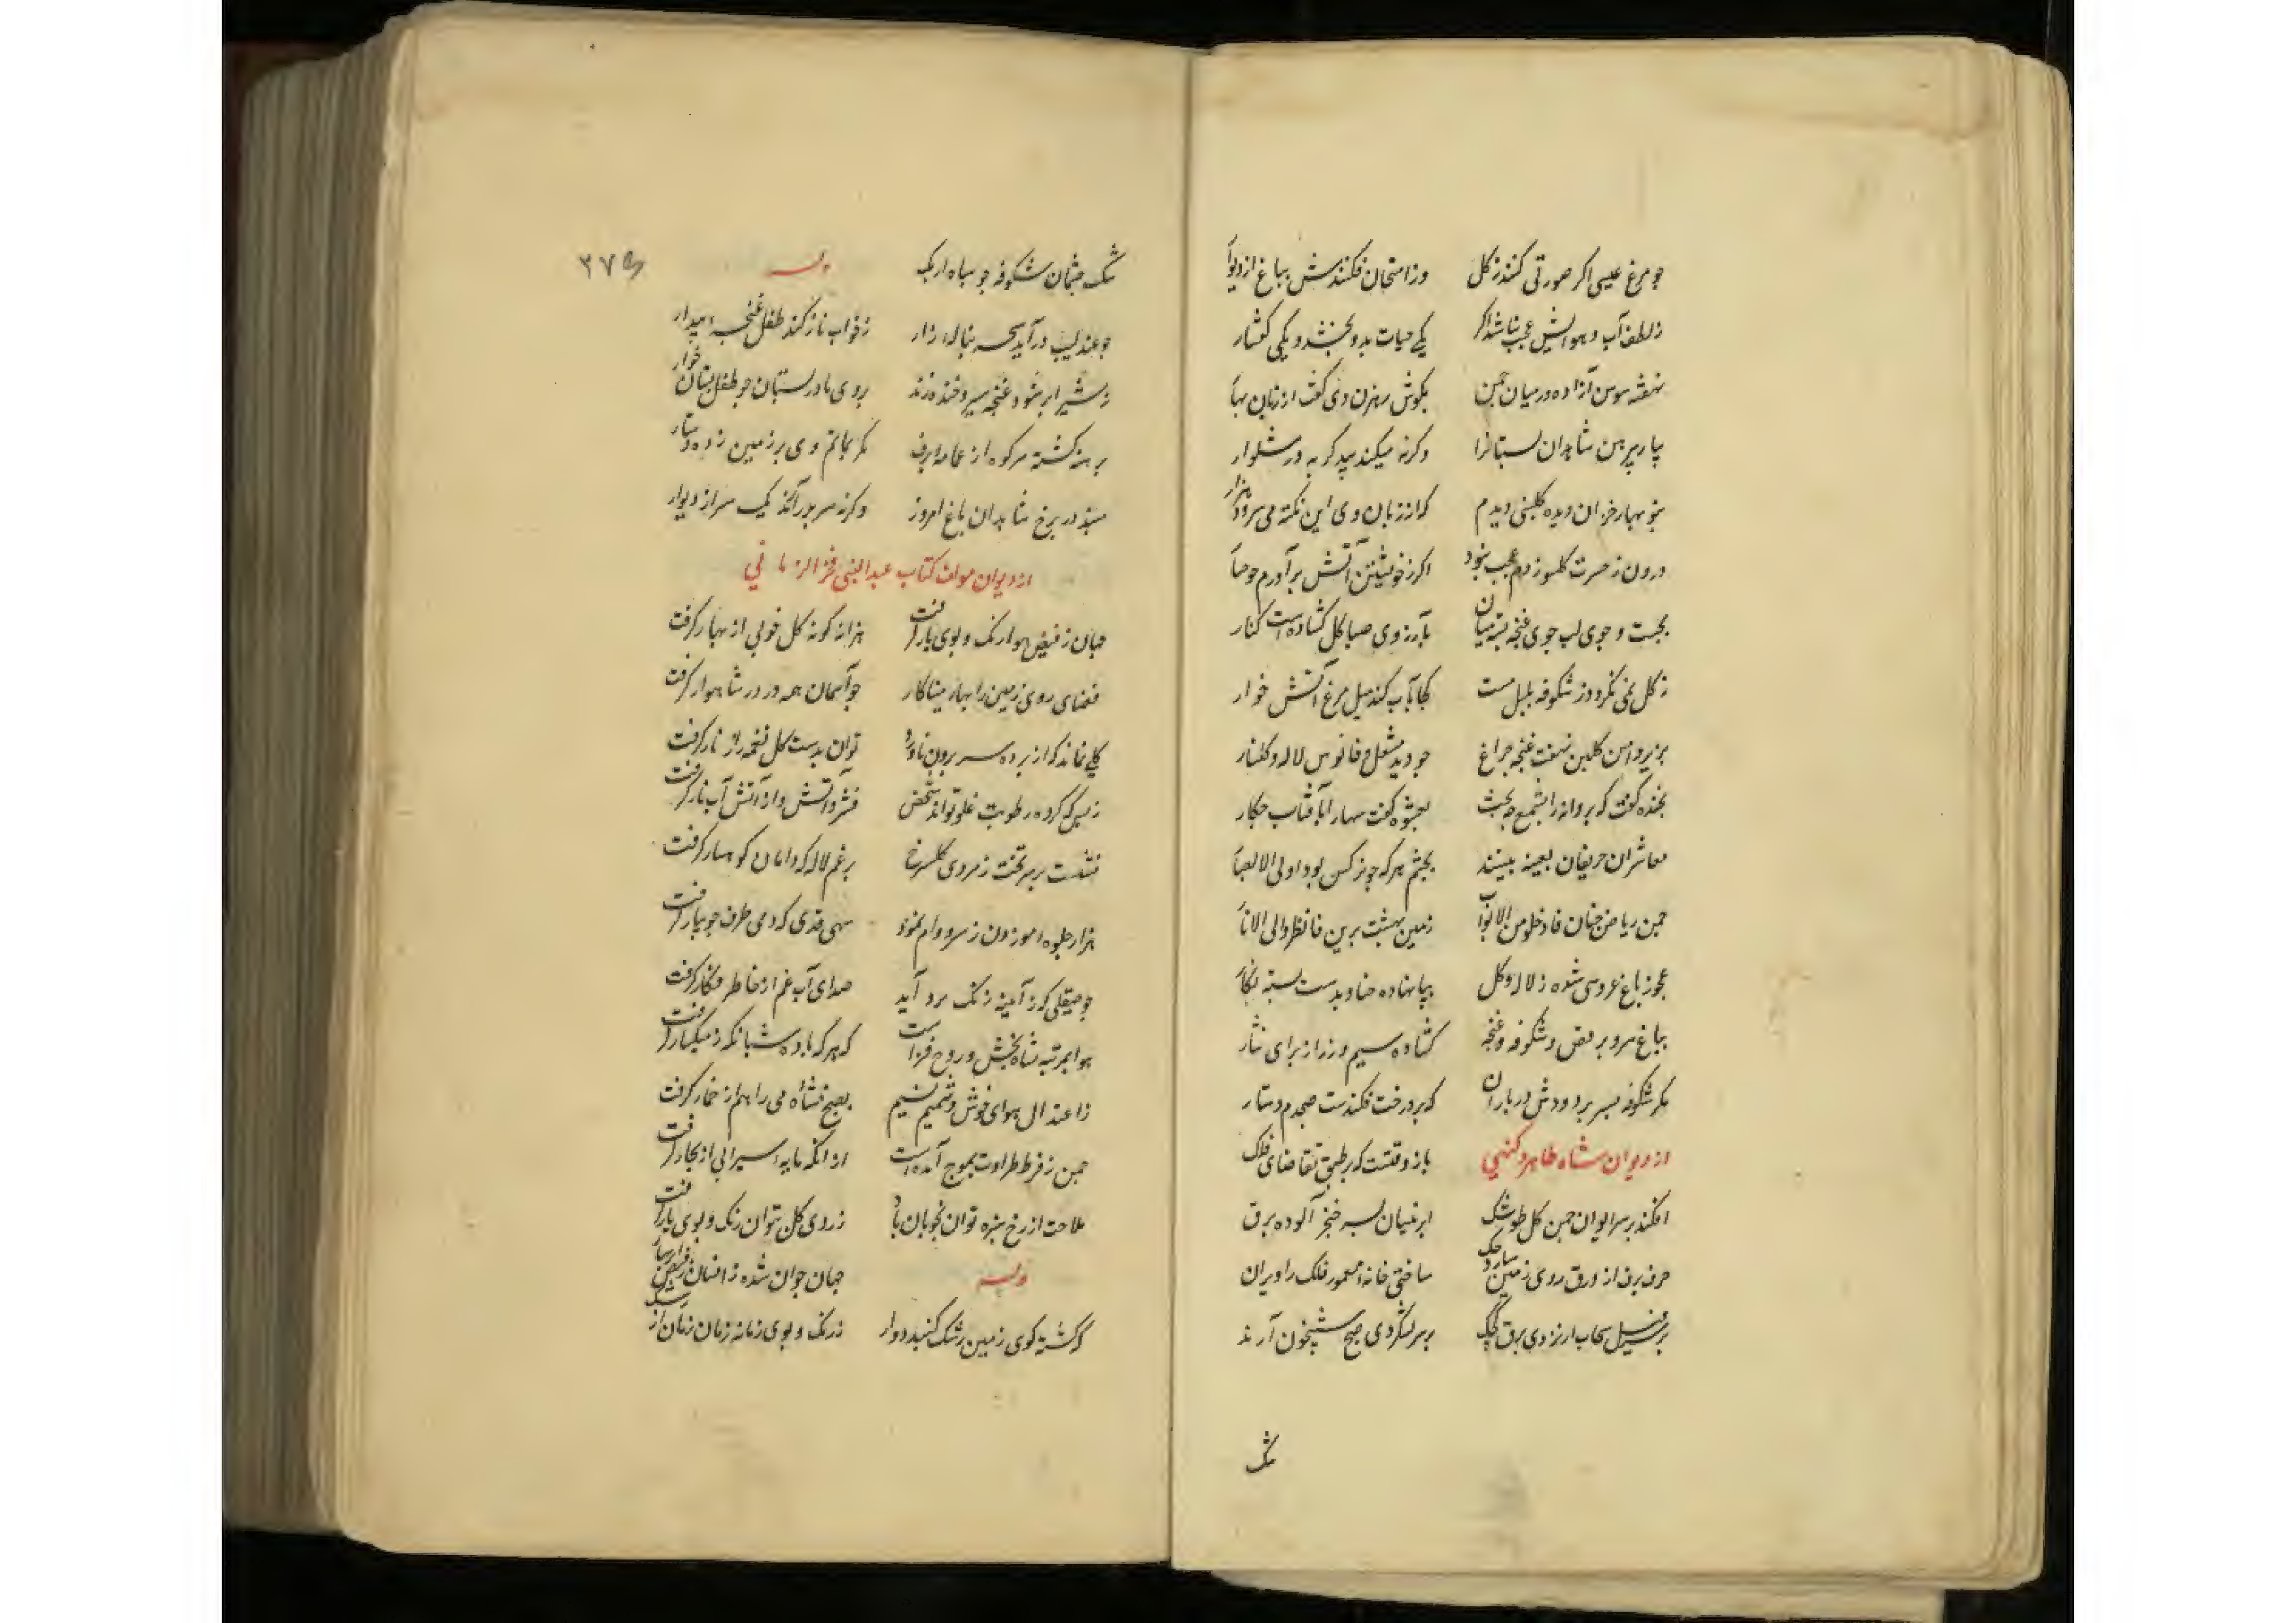 چو مرغ عیسی اگر صورتی کنند ز گل وز امتحان فکنندش بباغ از دیوار
ز لطف آب و هوایش عجب نباشد اگر یکی حیات بدو بخشد و یکی گفتار
نهفته سوسن آزاده در میان چمن بگوش نسترن دی گفت از زبان بهار
بیار پیرهن شاهدان بستانرا وگرنه میکند بید گربه در شلوار
بنو بهار خزان دیده گلبنی دیدم که از زبان وی این نکته می سرود هزار
درون ز حسرت گلسوز دم عجب نبود اگر ز خویشتن آتش برآورم چو چنار
بجست و جوی لب جوی غنچه بسته میان بآرزوی صبا گل گشاده است کنار
ز گل نمی نگرد در شکوفه بلبل مست کجا بآب کند میل مرغ آتش خوار
بزیر دامن گلبن نهفت غنچه چراغ چو دید مشعل و فانوس لاله و گلنار
بخنده گفت که پروانه را بشمع چه بحث بعشوه گفت سها را بآفتاب چکار
معاشران حریفان بعینه بینند بچشم هر که چو نرگس بود اولی الابصار
چمن ریاض جنان فادخلو من الابواب زمین بهشت برین فانظروا الی الآثار
عجوز باغ عروسی شده ز لاله و گل بپا نهاده حنا و بدست بسته نگار
بباغ سرو برقص و شکوفه و غنچه گشاده سیم و زر از برای نثار
مگر شکوفه بسر برد دوش در باران که بر درخت فکندست صبحدم دستار
از دیوان شاه طاهر دکنی باز وقتست که بر طبق تقاضای فلک
افکند بر سر ایوان چمن گل طوشک ابر نیسان بسر خنجر آلوده برق
حرف برف از ورق روی زمین سازد حک ساختی خانه معمور فلک را ویران
بر سر فیل سحاب ار نزدی برق کجک بر سر لشکر دی صبح شبیخون آرند
شک
شک چشمان شکوفه چو سپاه ازبک وله
۳۷۵
چو عندلیب درآید سحر بناله زار ز خواب ناز کند طفل غنچه را بیدار
ز شیر ابر شود غنچه سیر و خنده زند بروی مادر بستان چو طفل پستان خوار
برهنه گشته سر کوه از عمامه برف مگر بماتم دی بر زمین زده دستار
مبند در برخ شاهدان باغ امروز وگرنه سر بدر آرند یک سر از دیوار
از دیوان مولف کتاب عبدالنبی فخر الزمانی
جهان ز فیض هوا رنگ و بوی یار گرفت هزار گونه گل خوبی از بهار گرفت
فضای روی زمین را بهار میناکار چو آسمان همه در در شاهوار گرفت
گلی نماند که از پرده سر برون نآورد توان بدست گل نغمه را ز تار گرفت
ز بس که کرده رطوبت غلو تواند شخص فشرد آتش و از آتش آب نار گرفت
نشست بر سر تخت زمردی گل سرخ برغم لاله که دامان کوهسار گرفت
هزار جلوه موزون ز سرو وام نمود سهی قدی که دمی طرف جویبار گرفت
چو صیقلی که ز آئینه زنگ بزداید صدای آب غم از خاطر فکار گرفت
هوا بمرتبه نشاه بخش و روح فزاست که هر که باده شبانگه ز میگسار گرفت
ز اعتدال هوای خوش و شمیم نسیم بصبح نشأه می را هم از خمار گرفت
چمن ز فرط طراوت بموج آمده است از آنکه مایه سیرابی از بحار گرفت
ملاحت از رخ سبزه توان بخوبان داد ز روی گل بتوان رنگ و بوی یار گرفت
وله جهان جوان شده ز انسان ز فیض ابر بهار
که گشته کوی زمین رشک گنبد دوار ز رنگ و بوی زمانه زمان زمان از